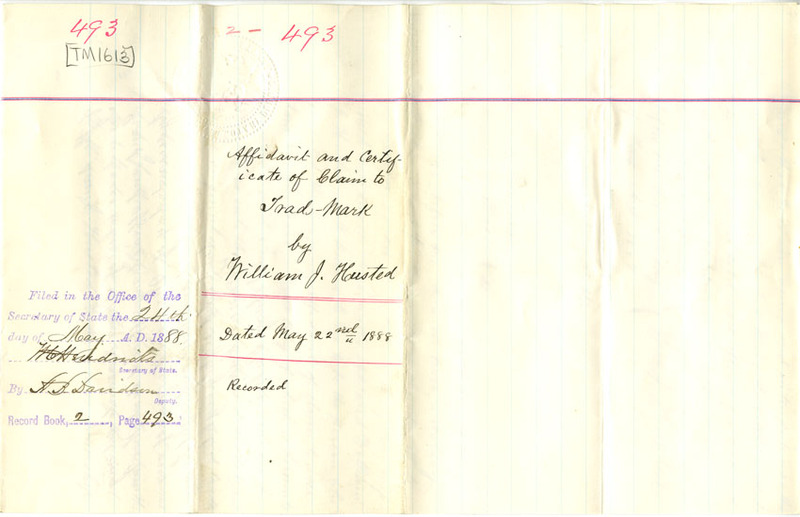 493
[TM1613]
2 - 493
Affidavit and Certif-
icate of Claim to
Trad-Mark
by
William J. Husted
Dated May 22nd 1888
Recorded
Filed in the Office of the
Secretary of State the 24th
day of May A. D. 1888.
W Hendricks
Secretary of State.
By A. A. Davidson
Deputy.
Record Book, 2, Page 493